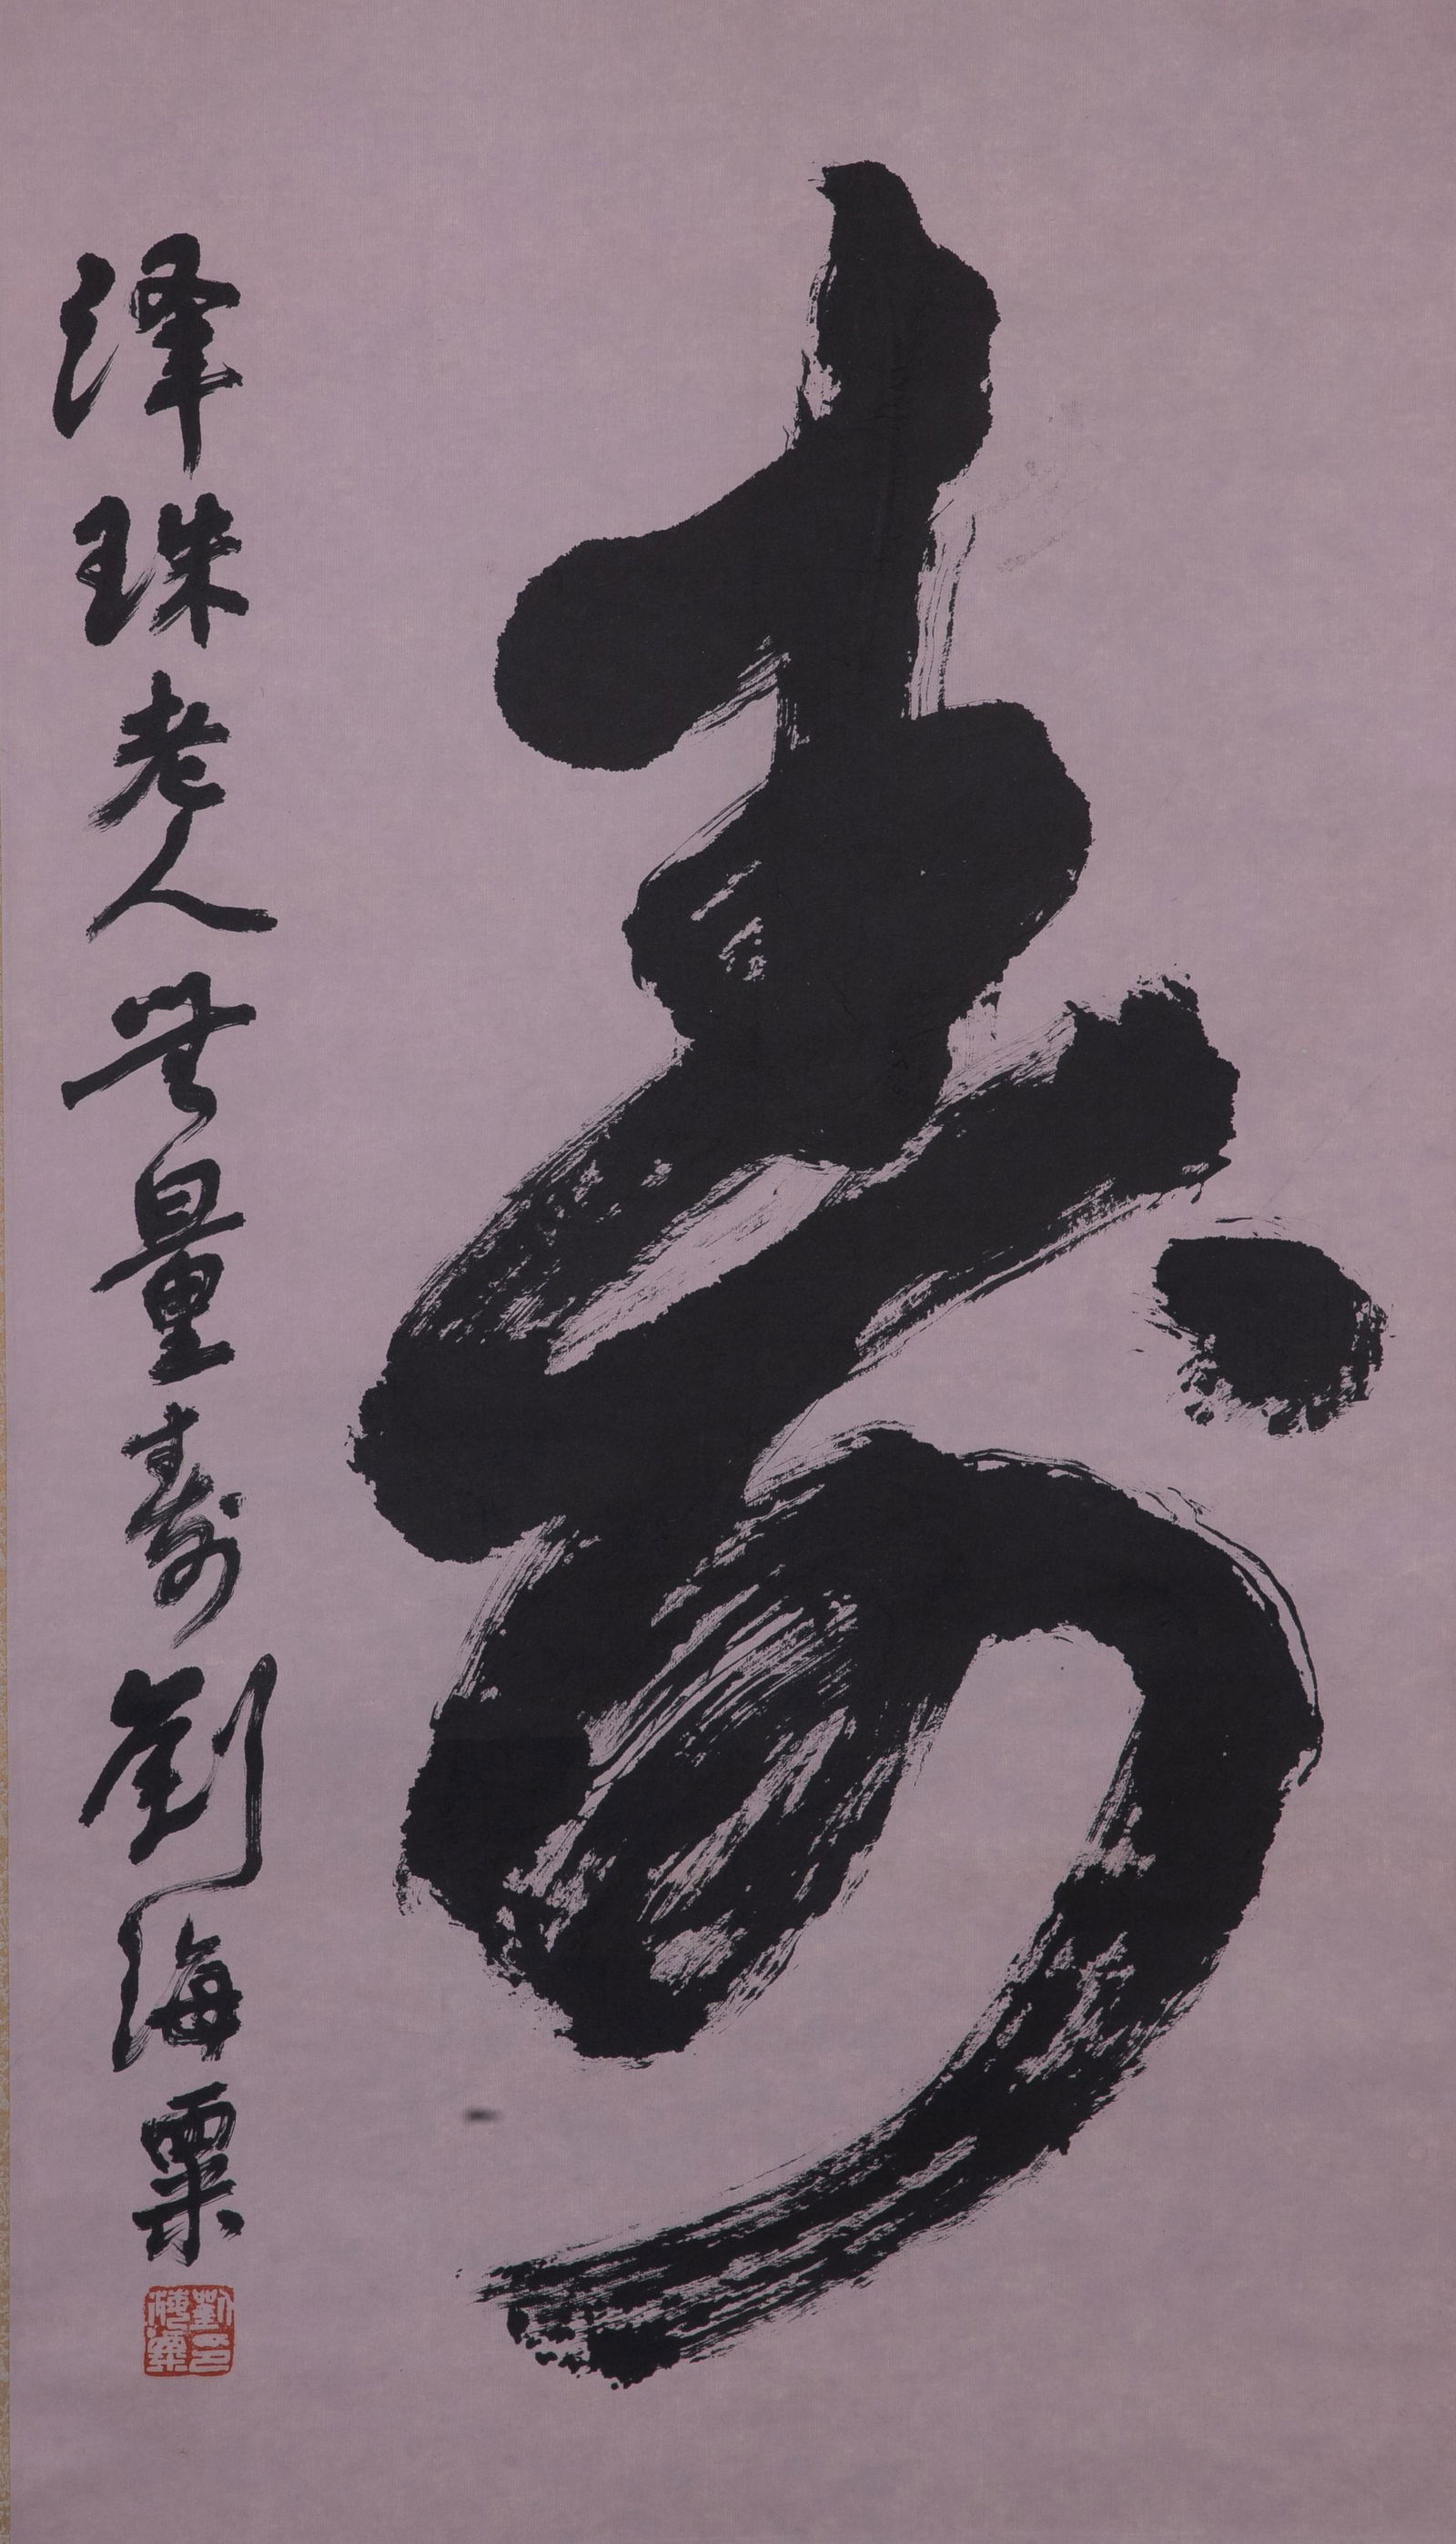 壽
澤珠老人無量壽劉海粟
劉海粟印